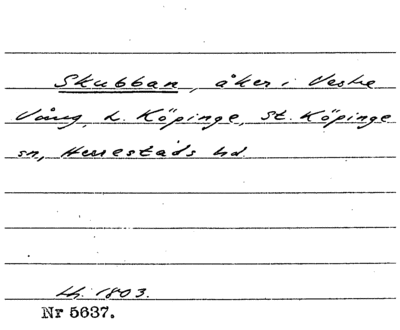 Skubban, åker i Vestre
Vång, L. Köpinge, St. Köpinge
sn, Herrestads hd
Lh. 1803.
Nr 5637.